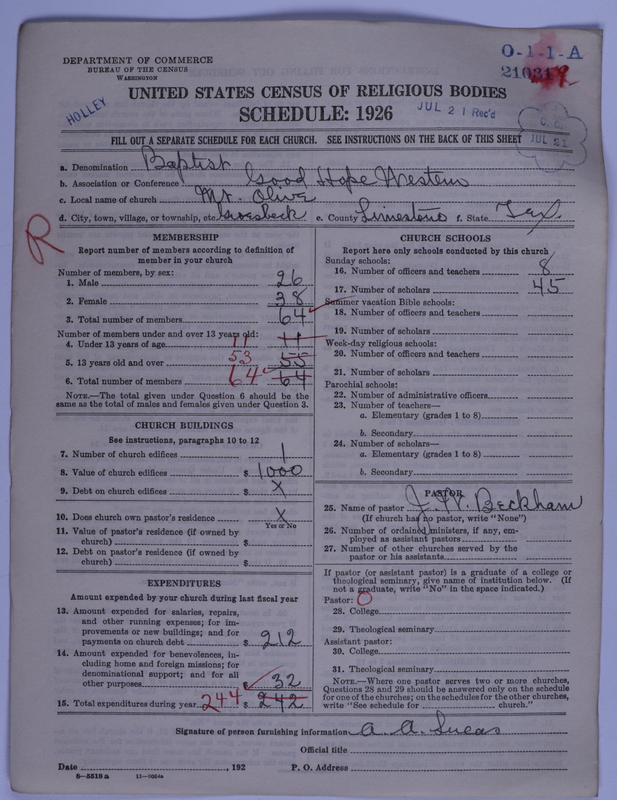 DEPARTMENT OF COMMERCE
BUREAU OF THE CENSUS
WASHINGTON
O-1-1-A
HOLLEY
UNITED STATES CENSUS OF RELIGIOUS BODIES
SCHEDULE: 1926
JUL 21 Rec'd
JUL 21
FILL OUT A SEPARATE SCHEDULE FOR EACH CHURCH. SEE INSTRUCTIONS ON THE BACK OF THIS SHEET
R
a. Denomination Baptist
b. Association or Conference Good Hope Western
c. Local name of church Mt. Olive
d. City, town, village, or township, etc. Groesbeck e. County Limestone f. State Tex.
MEMBERSHIP
Report number of members according to definition of
member in your church
Number of members, by sex:
1. Male 26
2. Female 38
3. Total number of members 64
Number of members under and over 13 years old:
4. Under 13 years of age 11 11
5. 13 years old and over 53 55
6. Total number of members 64 64
NOTE.—The total given under Question 6 should be the
same as the total of males and females given under Question 3.
CHURCH BUILDINGS
See instructions, paragraphs 10 to 12
7. Number of church edifices 1
8. Value of church edifices $ 1000
9. Debt on church edifices $ X
10. Does church own pastor's residence X
Yes or No
11. Value of pastor's residence (if owned by
church) $
12. Debt on pastor's residence (if owned by
church) $
EXPENDITURES
Amount expended by your church during last fiscal year
13. Amount expended for salaries, repairs,
and other running expenses; for im-
provements or new buildings; and for
payments on church debt $ 212
14. Amount expended for benevolences, in-
cluding home and foreign missions; for
denominational support; and for all
other purposes 32
15. Total expenditures during year 244 $ 242
CHURCH SCHOOLS
Report here only schools conducted by this church
Sunday schools:
16. Number of officers and teachers 8
17. Number of scholars 45
Summer vacation Bible schools:
18. Number of officers and teachers
19. Number of scholars
Week-day religious schools:
20. Number of officers and teachers
21. Number of scholars
Parochial schools:
22. Number of administrative officers
23. Number of teachers—
a. Elementary (grades 1 to 8)
b. Secondary
24. Number of scholars—
a. Elementary (grades 1 to 8)
b. Secondary
PASTOR
25. Name of pastor J. W. Beckham
(If church has no pastor, write "None")
26. Number of ordained ministers, if any, em-
ployed as assistant pastors
27. Number of other churches served by the
pastor or his assistants
If pastor (or assistant pastor) is a graduate of a college or
theological seminary, give name of institution below. (If
not a graduate, write "No" in the space indicated.)
Pastor: O
28. College
29. Theological seminary
Assistant pastor:
30. College
31. Theological seminary
NOTE.—Where one pastor serves two or more churches,
Questions 28 and 29 should be answered only on the schedule
for one of the churches; on the schedules for the other churches,
write "See schedule for church."
Signature of person furnishing information A. A. Lucas
Official title
Date , 192 P. O. Address
8—5519 a